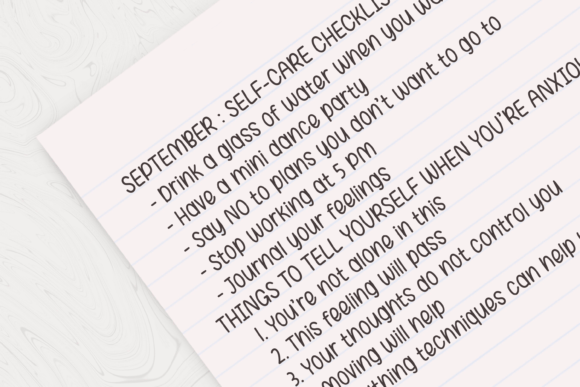 SEPTEMBER : SELF-CARE CHECKLIS
- Drink a glass of water when you wa
- Have a mini dance party
- Say NO to plans you don't want to go to
- Stop working at 5 pm
- Journal your feelings
THINGS TO TELL YOURSELF WHEN YOU'RE ANXIOU
1. You're not alone in this
2. This feeling will pass
3. Your thoughts do not control you
moving will help
thing techniques can help